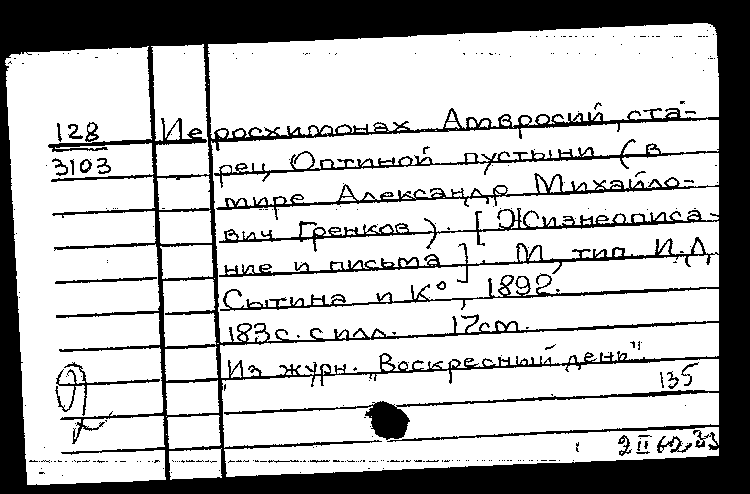 128 Иеросхимонах Амвросий, ста-
3103 рец Оптиной пустыни (в
мире Александр Михайло-
вич Гренков). [Жизнеописа-
ние и письма]. М., тип. И.Д.
Сытина и К°, 1892.
183с. с илл. 17см.
Из журн. „Воскресный день".
135
2 II 62.